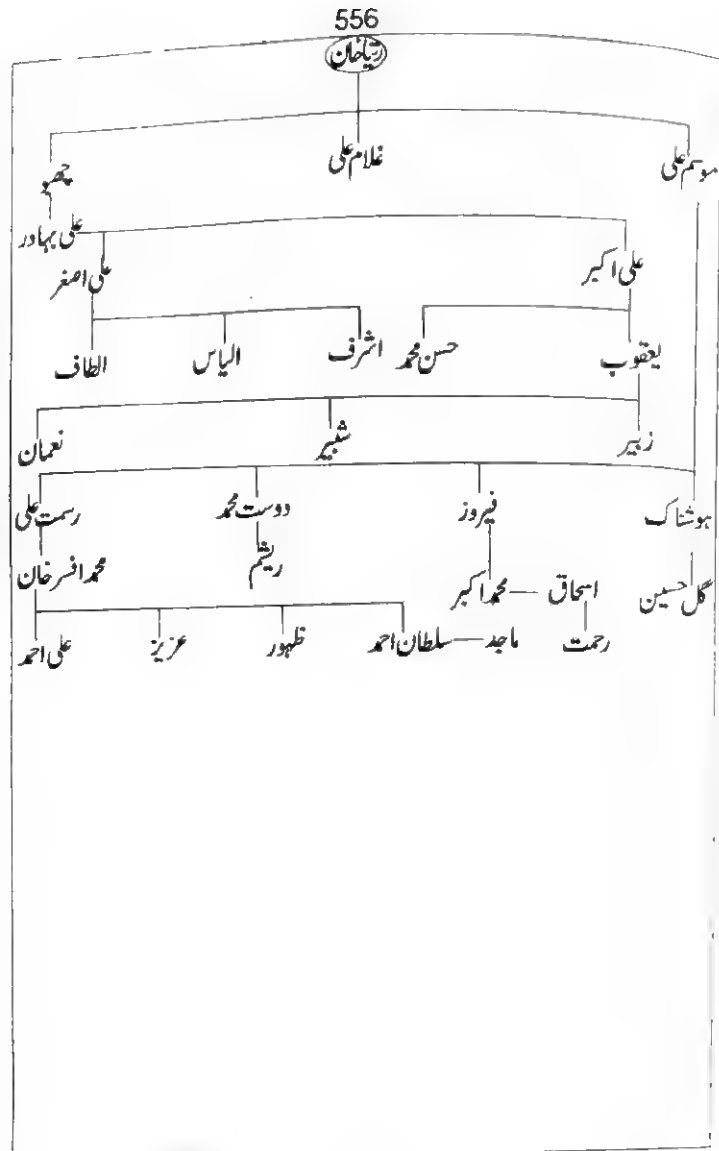 556
رتیا خان
موسم علی غلام علی چھبو
علی بہادر
علی اکبر علی اصغر
یعقوب حسن محمد اشرف الیاس الطاف
زبیر شبیر نعمان
ہوشناک فیروز دوست محمد رسمت علی
گل حسین اسحاق — محمد اکبر ریشم محمد افسر خان
رحمت ماجد — سلطان احمد ظہور عزیز علی احمد